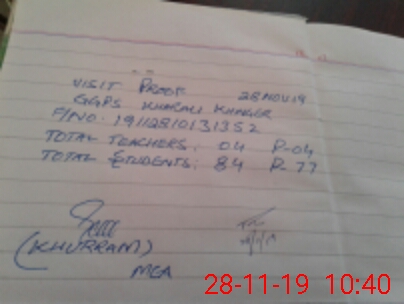 VISIT PROOF 28 NOV 19
GGPS KHARALI KHANGER
F/NO: 19112810131352
TOTAL TEACHERS: 04 P-04
TOTAL STUDENTS: 84 P-77
(KHURRAM)
MEA
28-11-19 10:40